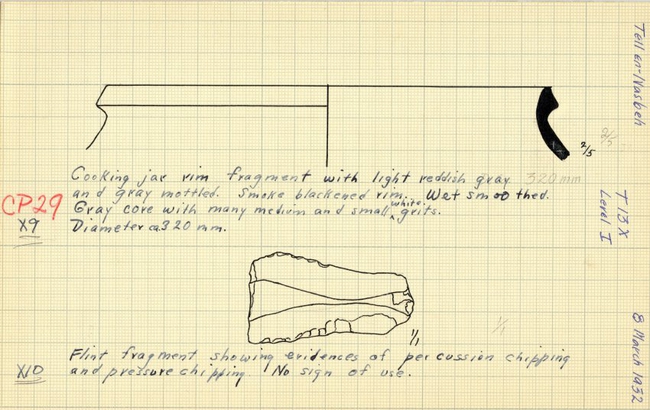 Tell en-Nasbeh
2/5
2/5
Cooking jar rim fragment with light reddish gray 320 mm
and gray mottled. Smoke blackened rim. Wet smoothed.
Gray core with many medium and small white grits.
Diameter ca 320 mm.
CP29
X9
T 13 X
Level I
1/1
1/1
Flint fragment showing evidences of percussion chipping
and pressure chipping. No sign of use.
X10
8 March 1932